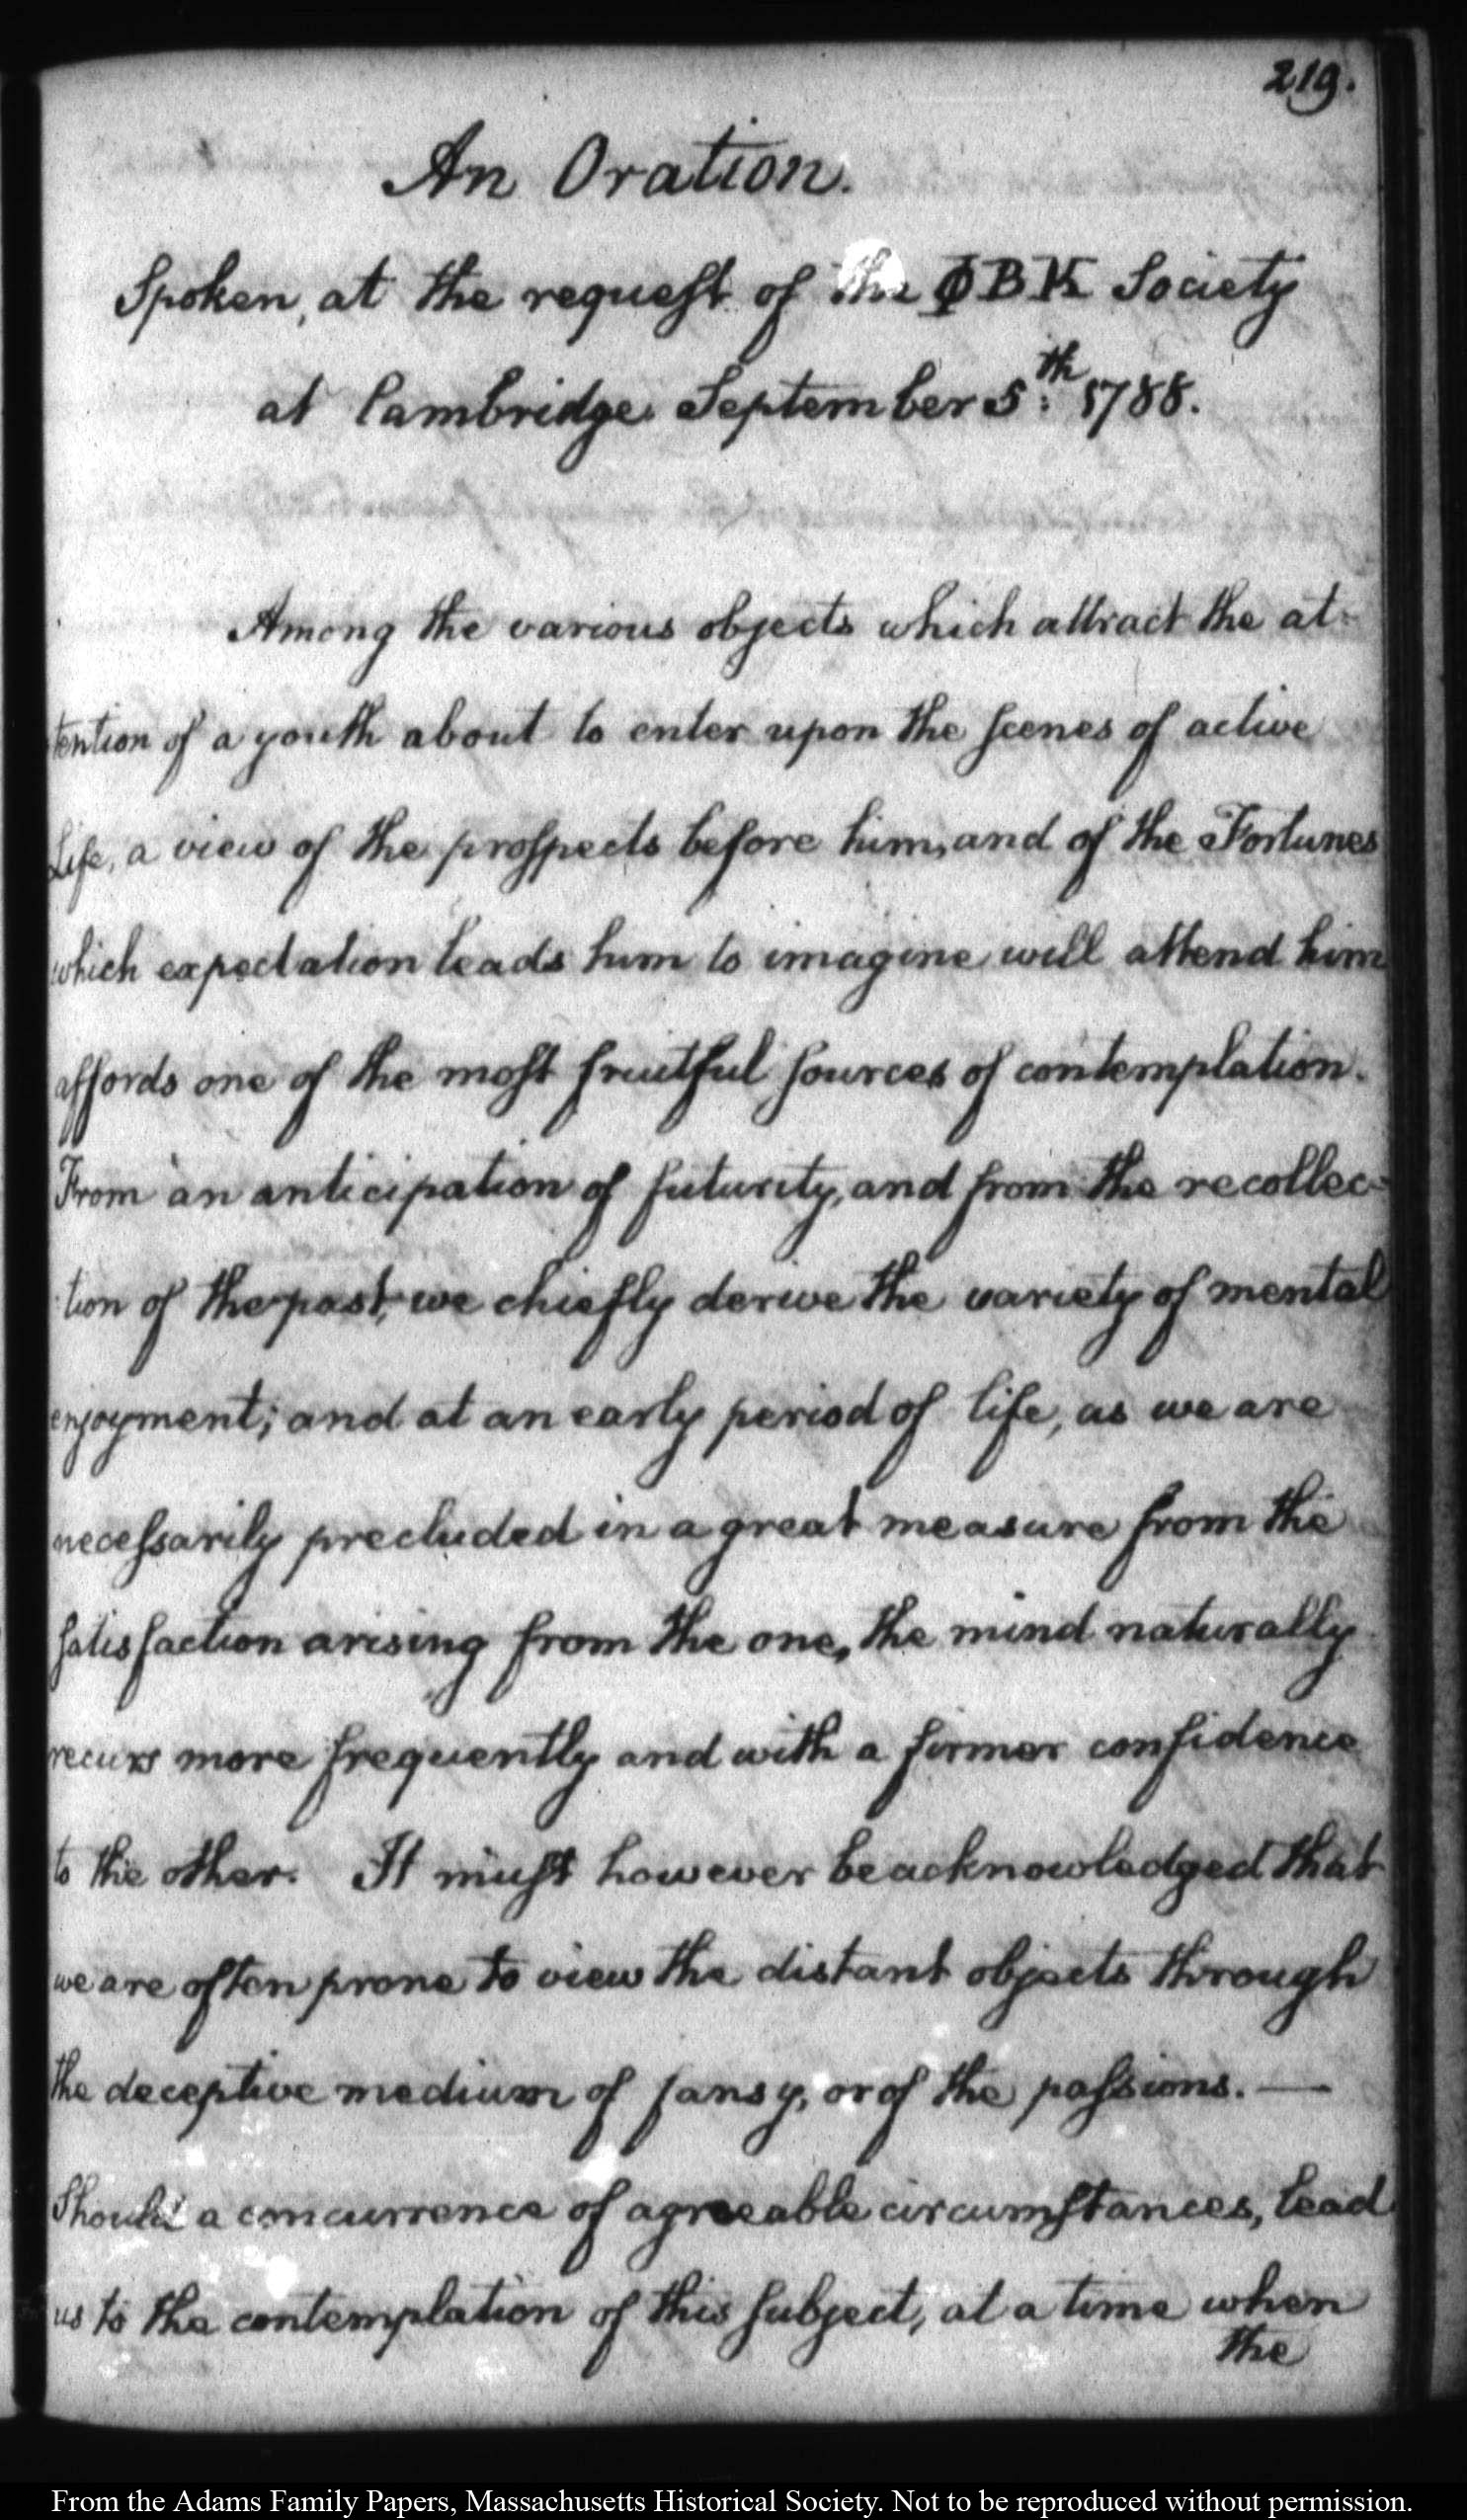 219.
An Oration.
Spoken, at the request of the ΦBK Society
at Cambridge September 5:th 1788.
Among the various objects which attract the at-
tention of a youth about to enter upon the scenes of active
Life, a view of the prospects before him, and of the Fortunes
which expectation leads him to imagine will attend him
affords one of the most fruitful sources of contemplation.
From an anticipation of futurity, and from the recollec-
tion of the past, we chiefly derive the variety of mental
enjoyment; and at an early period of life, as we are
necessarily precluded in a great measure from the
satisfaction arising from the one, the mind naturally
recurs more frequently and with a firmer confidence
to the other. It must however be acknowledged that
we are often prone to view the distant objects through
the deceptive medium of fansy, or of the passions. —
Should a concurrence of agreeable circumstances, lead
us to the contemplation of this subject, at a time when
the
From the Adams Family Papers, Massachusetts Historical Society. Not to be reproduced without permission.